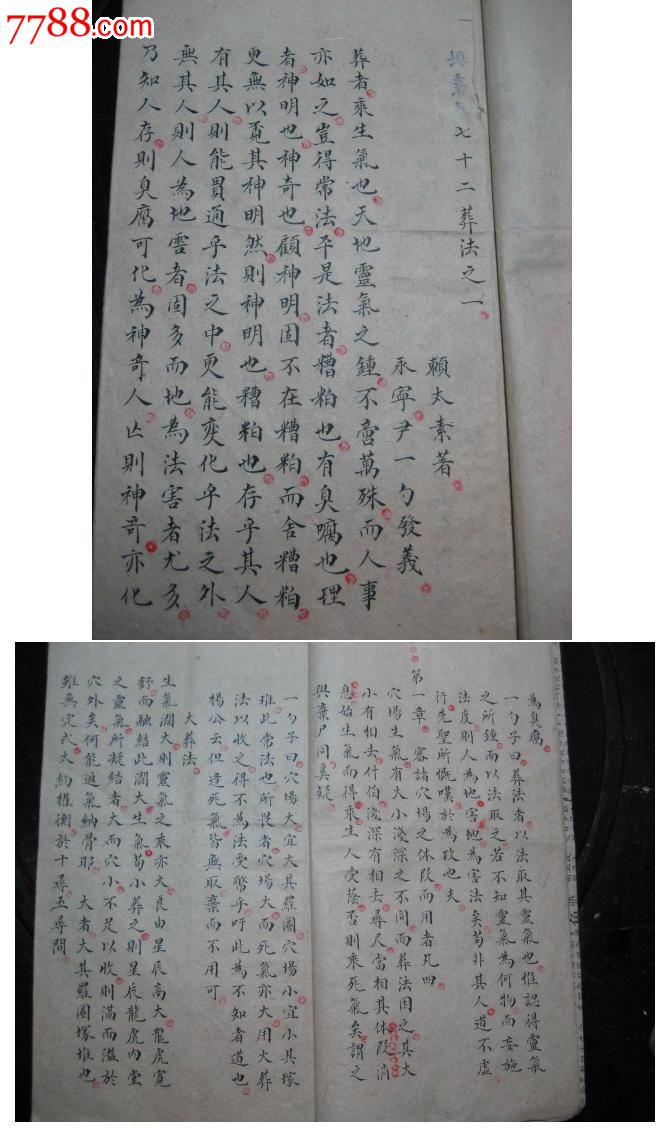 7788.com
七十二葬法之一
賴太素著
永寧尹一勺發義
葬者乘生氣也天地靈氣之鍾不啻萬殊而人事
亦如之豈得常法乎是法者糟粕也有臭腐也理
者神明也神奇也顧神明固不在糟粕而舍糟粕
更無以覔其神明然則神明也糟粕也存乎其人
有其人則能貫通乎法之中更能变化乎法之外
無其人則人為地害者固多而地為法害者尤多
乃知人存則臭腐可化為神奇人亡則神竒亦化
為臭腐
一勺子曰葬法者以法取其靈氣也惟認得靈氣
之所鍾而以法取之若不知靈氣為何物而妄施
法度則人為地害地為害法矣苟非其人道不虛
行先聖所慨嘆於為政也夫
第一章審諸穴塲之休歿而用者凡四
穴塲生氣有大小淺深之不同而葬法因之其大
小有相去什伯淺深有相去尋尺當相其休歿消
息始生氣而得乘生人受蔭否則乘死氣矣謂之
與棄尸同奚疑
一勺子曰穴塲大宜大其羅圍穴塲小宜小其塚
堆此常法也所畏者穴塲大而死氣亦大用大葬
法以收之得不為法受幣乎吁此為不知者道也
楊公云但逢死氣皆無取棄而不用可
大葬法
生氣濶大則靈氣之乘亦大良由星辰高大龍虎寛
舒而融結此濶大生氣苟小葬之則星辰龍虎內堂
之靈氣所凝結者大而穴小不足以收則滿而溢於
穴外矣何能返氣納骨耶 大者大其羅圍塚堆也
雖無定式大約權衡於十尋五尋間